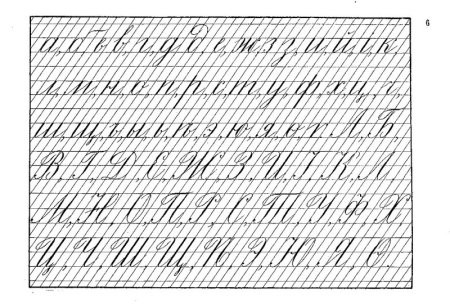 6
а, б, в, в, г, д, д, е, ж, з, з, и, й, і, к,
л, м, н, о, п, р, с, т, у, ф, х, ц, ч,
ш, щ, ъ, ы, ь, ѣ, э, ю, я, ѳ, ѵ, А, Б,
В, Г, Д, Е, Ж, З, И, І, К, Л,
М, Н, О, П, Р, С, Т, У, Ф, Х,
Ц, Ч, Ш, Щ, Ѣ, Э, Ю, Я, Ѳ.